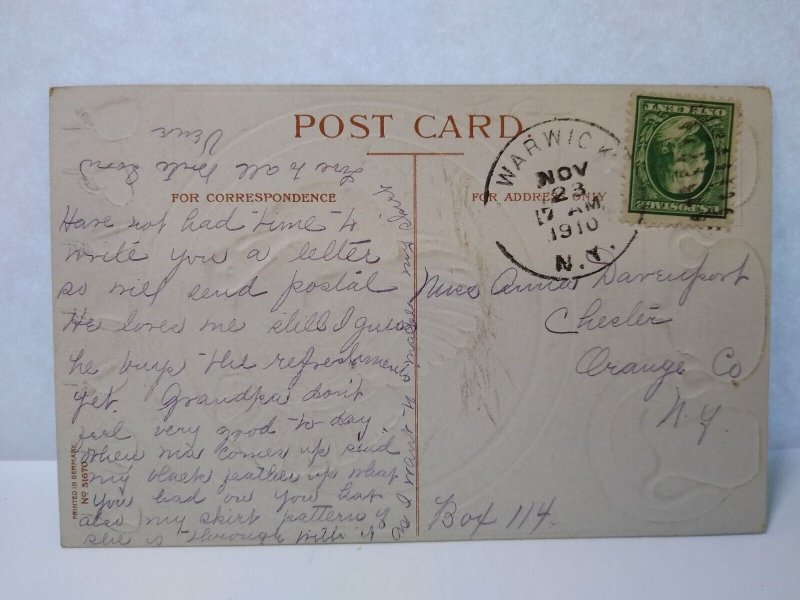 POST CARD
FOR CORRESPONDENCE
FOR ADDRESS ONLY
WARWICK
NOV
23
17 AM
1910
N.Y.
ONE CENT
U.S. POSTAGE
Have not had time to
write you a letter
so will send postal
He loves me still I guess
he buys the refreshments
yet. Grandpa don't
feel very good to-day.
When ma comes up send
my black feather up what
you had on you hat
also my skirt pattern if
she is through with it
as I want it
skirt
Love to all
Miss Anna Davenport
Chester
Orange Co
N.Y.
Box 114.
PRINTED IN GERMANY
No 51670